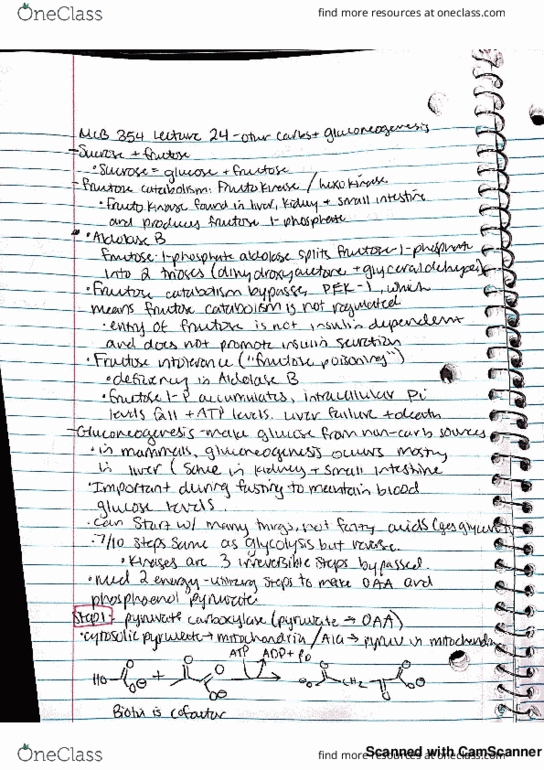 OneClass
find more resources at oneclass.com
MCB 354 Lecture 24 - other carbs + gluconeogenesis
- Sucrose + fructose
• Sucrose = glucose + fructose
- Fructose catabolism: Fructokinase / hexokinase
• fructokinase found in liver, kidney + small intestine
and produces fructose 1-phosphate
• Aldolase B
fructose-1-phosphate aldolase splits fructose-1-phosphate
into 2 trioses (dihydroxyacetone + glyceraldehyde)
• Fructose catabolism bypasses PFK-1, which
means fructose catabolism is not regulated
• entry of fructose is not insulin dependent
and does not promote insulin secretion
• Fructose intolerance ("fructose poisoning")
• deficiency in Aldolase B
• fructose 1-P accumulates, intracellular Pi
levels fall + ATP levels. Liver failure + death
- Gluconeogenesis - make glucose from non-carb sources
• in mammals, gluconeogenesis occurs mostly
in liver (some in kidney + small intestine
• Important during fasting to maintain blood
glucose levels.
• Can start w/ many things, not fatty acids (yes glycerol)
• 7/10 steps same as glycolysis but reverse.
• Kinases are 3 irreversible steps bypassed.
• need 2 energy-utilizing steps to make OAA and
phosphoenol pyruvate
Step 1: pyruvate carboxylase (pyruvate → OAA)
• cytosolic pyruvate → mitochondria / Ala → pyruv in mitochondria
ATP ADP + Pi
HO O O⊖ + O O O⊖ → O ⊖O CH2 O O O⊖
Biotin is cofactor
OneClass
find more resources at oneclass.com
Scanned with CamScanner